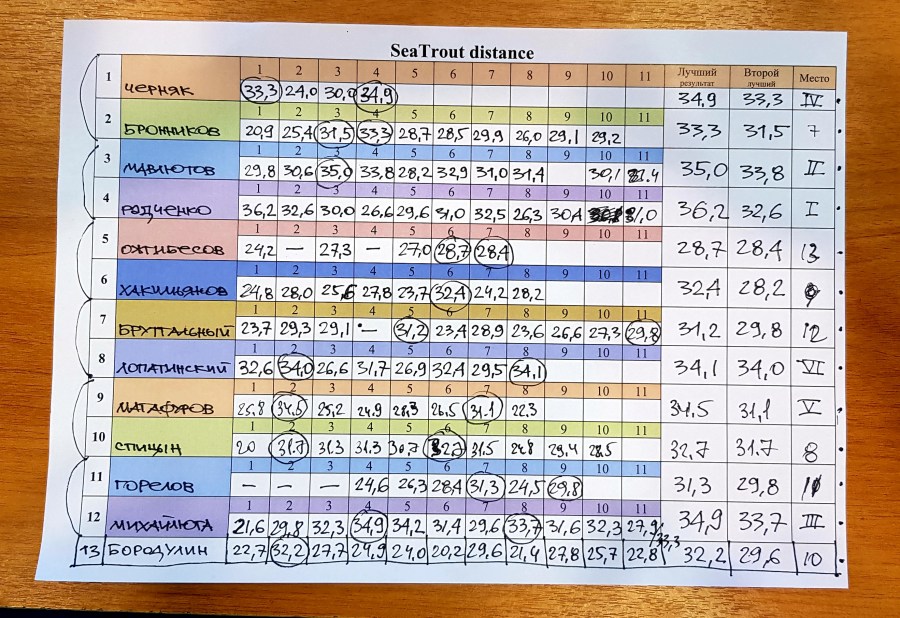 SeaTrout distance
1 2 3 4 5 6 7 8 9 10 11 Лучший результат Второй лучший Место
1 ЧЕРНЯК 33,3 24,0 30,9 34,9 34,9 33,3 IV
1 2 3 4 5 6 7 8 9 10 11
2 БРОННИКОВ 20,9 25,4 31,5 33,3 28,7 28,5 29,9 26,0 29,1 29,2 33,3 31,5 7
1 2 3 4 5 6 7 8 9 10 11
3 МАВЛЮТОВ 29,8 30,6 35,0 33,8 28,2 32,9 31,0 31,4 30,1 35,0 33,8 II
1 2 3 4 5 6 7 8 9 10 11
4 РАДЧЕНКО 36,2 32,6 30,0 26,6 29,6 31,0 32,5 26,3 30,4 31,0 36,2 32,6 I
1 2 3 4 5 6 7 8 9 10 11
5 24,2 — 27,3 — 27,0 28,7 28,4 28,7 28,4 13
1 2 3 4 5 6 7 8 9 10 11
6 ХАКИМЬЯНОВ 24,8 28,0 25,6 27,8 23,7 32,4 24,2 28,2 32,4 28,2 9
1 2 3 4 5 6 7 8 9 10 11
7 БРУТАЛЬНЫЙ 23,7 29,3 29,1 — 31,2 23,4 28,9 23,6 26,6 27,3 29,8 31,2 29,8 12
1 2 3 4 5 6 7 8 9 10 11
8 ЛОПАТИНСКИЙ 32,6 34,0 26,6 31,7 26,9 32,4 29,5 34,1 34,1 34,0 VI
1 2 3 4 5 6 7 8 9 10 11
9 МАТАФУРОВ 25.8 34,5 25,2 24,9 28,3 26,5 31,1 22.3 34,5 31,1 V
1 2 3 4 5 6 7 8 9 10 11
10 СПИЦЫН 20 31.7 31.3 31.3 30,7 32,7 31,5 24.8 29,4 28,5 32,7 31.7 8
1 2 3 4 5 6 7 8 9 10 11
11 ГОРЕЛОВ — — — 24,6 26,3 28,4 31,3 24,5 29,8 31,3 29,8 11
1 2 3 4 5 6 7 8 9 10 11
12 МИХАЙЛЮТА 21,6 29,8 32,3 34,9 34,2 31,4 29,6 33,7 31,6 32,3 27,9 33,3 34,9 33,7 III
13 БОРОДУЛИН 22,7 32,2 27,7 24,9 24,0 20,2 29,6 21,4 27,8 25,7 22,8 32,2 29,6 10